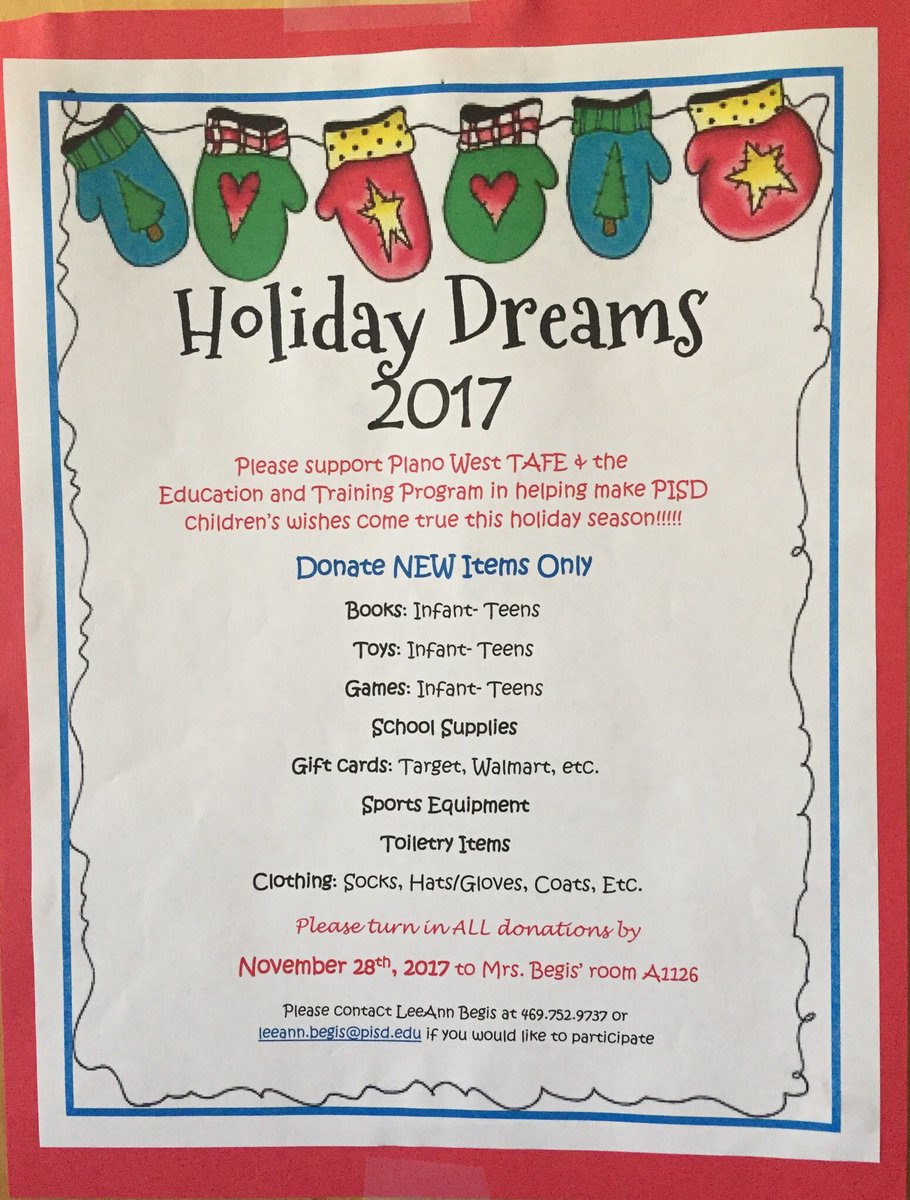 Holiday Dreams
2017
Please support Plano West TAFE & the
Education and Training Program in helping make PISD
children's wishes come true this holiday season!!!!!
Donate NEW Items Only
Books: Infant- Teens
Toys: Infant- Teens
Games: Infant- Teens
School Supplies
Gift cards: Target, Walmart, etc.
Sports Equipment
Toiletry Items
Clothing: Socks, Hats/Gloves, Coats, Etc.
Please turn in ALL donations by
November 28th, 2017 to Mrs. Begis' room A1126
Please contact LeeAnn Begis at 469.752.9737 or
leeann.begis@pisd.edu if you would like to participate